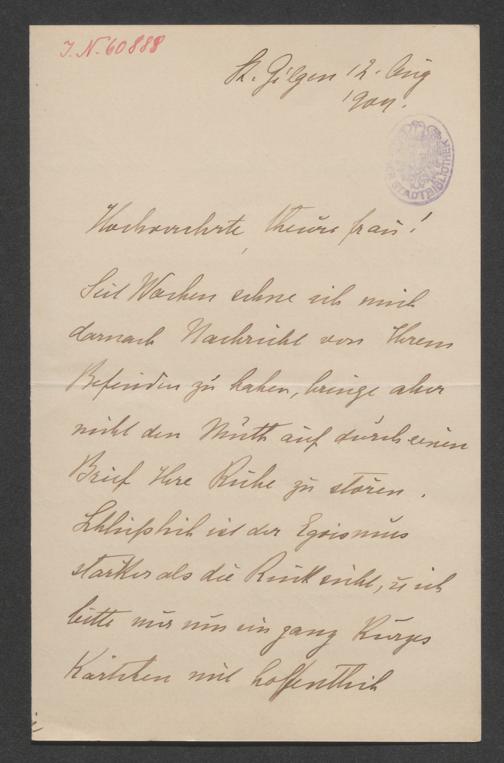 J. N. 60888
St. Gilgen 12. Aug
190
STADTBIBLIOTHEK
Hochverehrte, theure Frau!
Seit Wochen sehne ich mich
darnach Nachricht von Ihrem
Befinden zu haben, bringe aber
nicht den Muth auf durch einen
Brief Ihre Ruhe zu stören.
Schließlich ist der Egoismus
stärker als die Rücksicht, u ich
bitte nur um ein ganz kurzes
Kärtchen mit hoffentlich